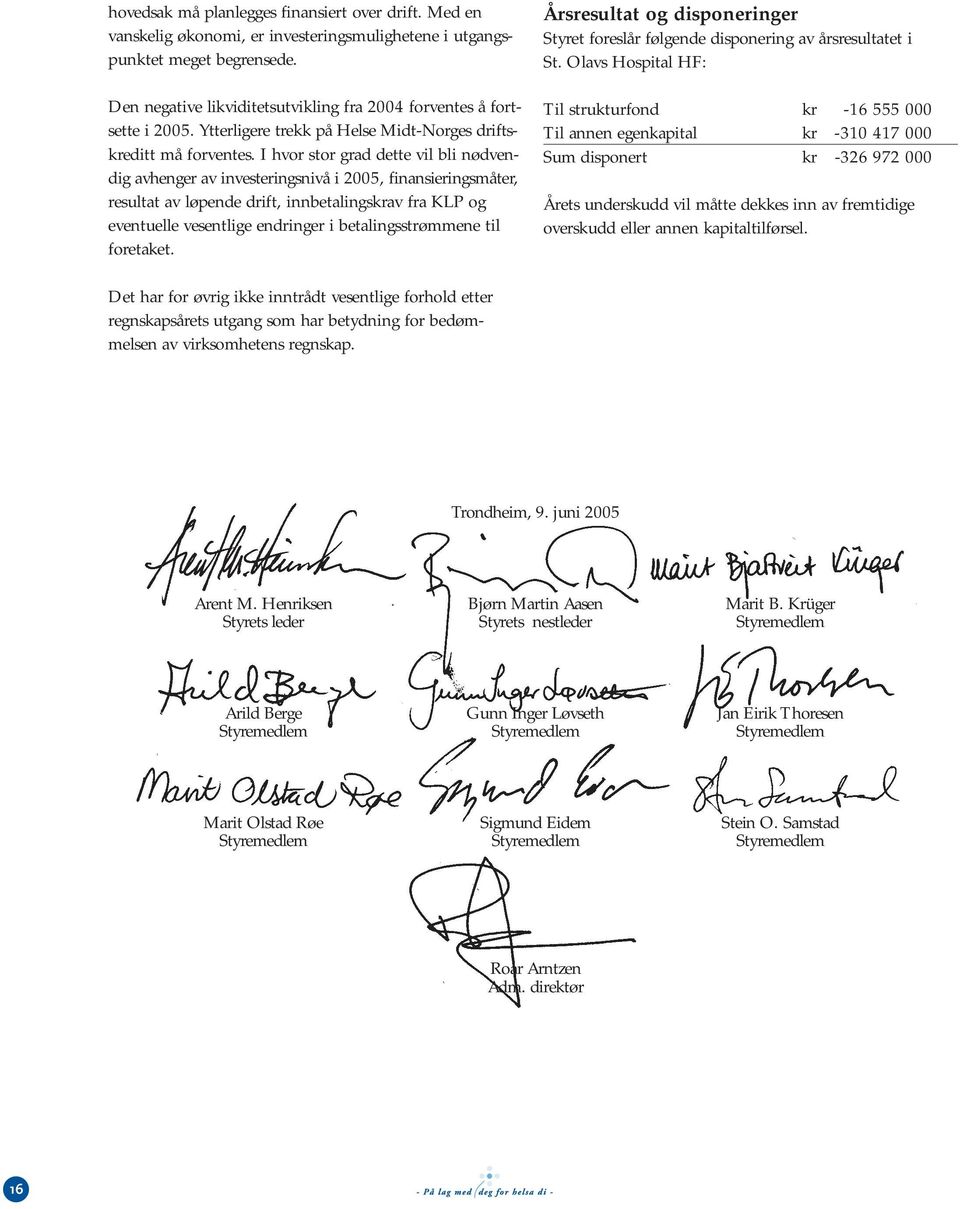 hovedsak må planlegges finansiert over drift. Med en
vanskelig økonomi, er investeringsmulighetene i utgangs-
punktet meget begrensede.
Den negative likviditetsutvikling fra 2004 forventes å fort-
sette i 2005. Ytterligere trekk på Helse Midt-Norges drifts-
kreditt må forventes. I hvor stor grad dette vil bli nødven-
dig avhenger av investeringsnivå i 2005, finansieringsmåter,
resultat av løpende drift, innbetalingskrav fra KLP og
eventuelle vesentlige endringer i betalingsstrømmene til
foretaket.
Det har for øvrig ikke inntrådt vesentlige forhold etter
regnskapsårets utgang som har betydning for bedøm-
melsen av virksomhetens regnskap.
Årsresultat og disponeringer
Styret foreslår følgende disponering av årsresultatet i
St. Olavs Hospital HF:
Til strukturfond kr -16 555 000
Til annen egenkapital kr -310 417 000
Sum disponert kr -326 972 000
Årets underskudd vil måtte dekkes inn av fremtidige
overskudd eller annen kapitaltilførsel.
Trondheim, 9. juni 2005
Arent M. Henriksen Bjørn Martin Aasen Marit B. Krüger
Styrets leder Styrets nestleder Styremedlem
Arild Berge Gunn Inger Løvseth
Arild Berge Gunn Inger Løvseth Jan Eirik Thoresen
Styremedlem Styremedlem Styremedlem
Marit Olstad Røe
Marit Olstad Røe Sigmund Eidem Stein O. Samstad
Styremedlem Styremedlem Styremedlem
Roar Arntzen
Adm. direktør
16
- På lag med deg for helsa di -